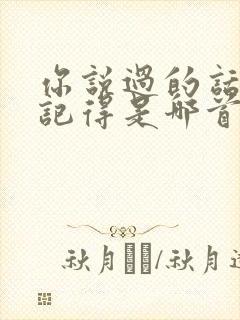 你說過的話
記得是哪首
秋月/秋月